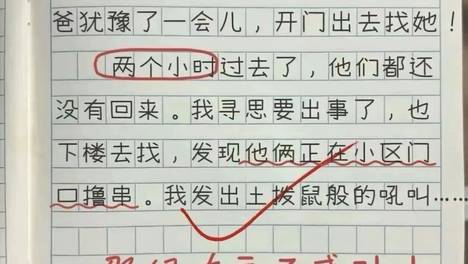 爸犹豫了一会儿，开门出去找她！
两个小时过去了，他们都还
没有回来。我寻思要出事了，也
下楼去找，发现他俩正在小区门
口撸串。我发出土拨鼠般的吼叫……